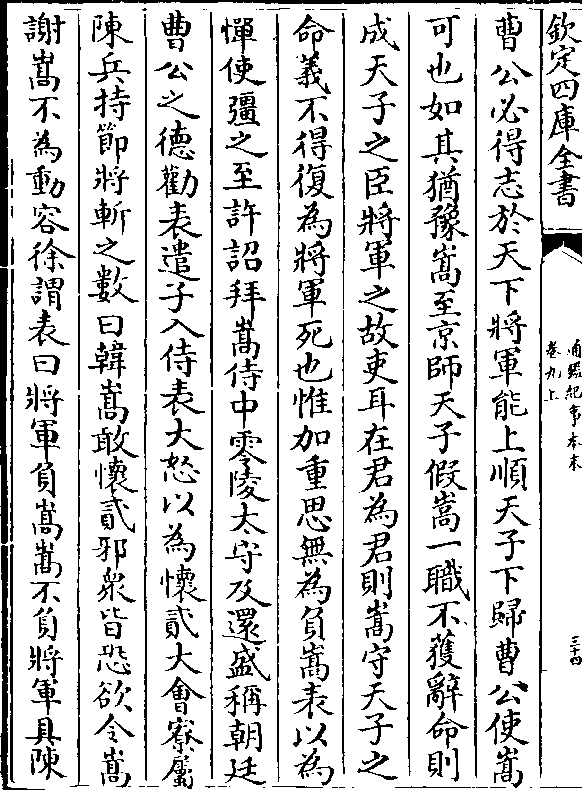 欽定四庫全書
通鑑紀事本末
卷九上
三十四
曹公必得志於天下將軍能上順天子下歸曹公使嵩
可也如其猶豫嵩至京師天子假嵩一職不獲辭命則
成天子之臣將軍之故吏耳在君為君則嵩守天子之
命義不得復為將軍死也惟加重思無為負嵩表以為
憚使彊之至許詔拜嵩侍中零陵太守及還盛稱朝廷
曹公之德勸表遣子入侍表大怒以為懷貳大會寮屬
陳兵持節將斬之數曰韓嵩敢懷貳邪衆皆恐欲令嵩
謝嵩不為動容徐謂表曰將軍負嵩嵩不負將軍具陳